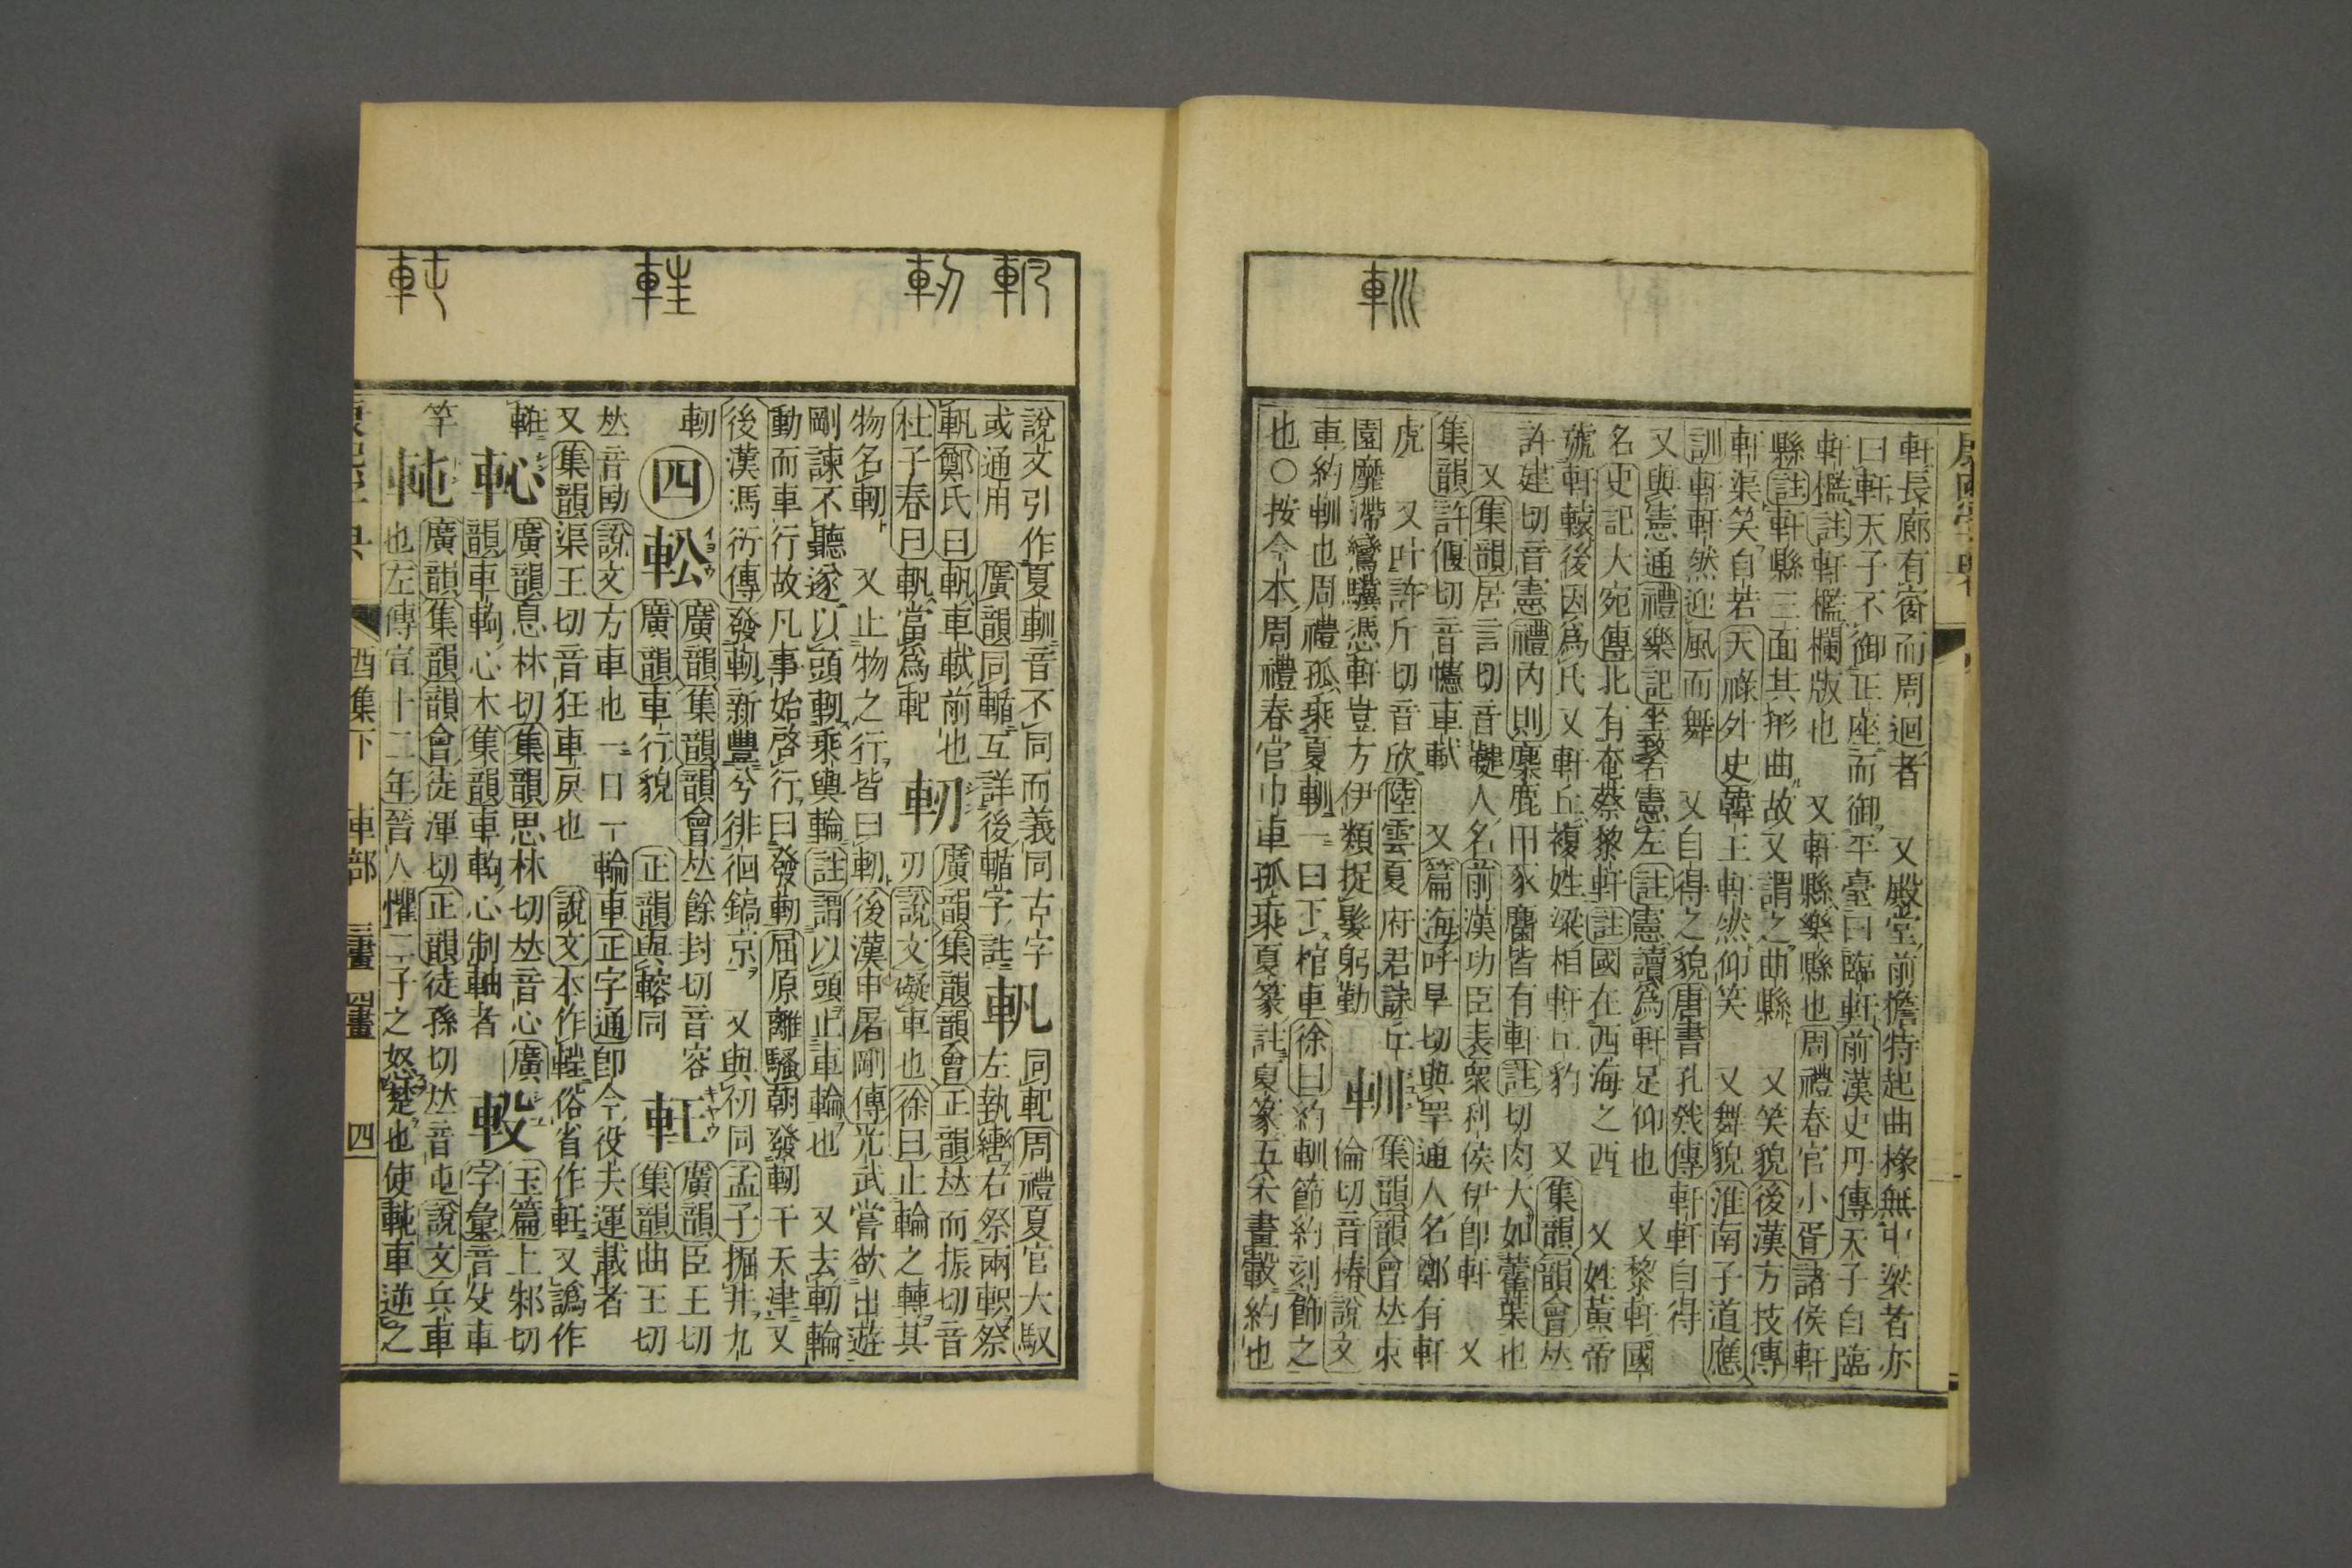 軒長廊有窗而周迴者　又殿堂前檐特起曲椽無中梁者亦
曰軒天子不御正座而御平臺曰臨軒前漢史丹傳天子自臨
軒檻註軒檻欄版也　又軒縣樂縣也周禮春官小胥諸侯軒
縣註軒縣三面其形曲故又謂之曲縣　又笑貌後漢方技傳
軒渠笑自若天祿外史韓王軒然仰笑　又舞貌淮南子道應
訓軒軒然迎風而舞　又自得之貌唐書孔戣傳軒軒自得
又與憲通禮樂記坐致右憲左註憲讀爲軒足仰也　又黎軒國
名史記大宛傳北有奄蔡黎軒註國在西海之西　又姓黃帝
號軒轅後因爲氏　又軒丘複姓梁相軒丘豹　又集韻韻會𠀤
許建切音憲禮內則麋鹿田豕麕皆有軒註切肉大如藿葉也
又集韻居言切音鞬人名前漢功臣表衆利侯伊卽軒　又
集韻許偃切音幰車軾　又篇海呼旱切與罕通人名鄭有軒
虎　又叶許斤切音欣陸雲夏府君誄丘
園靡滯鸞驥憑軒豈方伊類捉髮躬勤
軐集韻韻會𠀤朱倫切音椿說文
車約軐也周禮孤乘夏軐一曰下棺車徐曰約軐節約刻飾之
也〇按今本周禮春官巾車孤乘夏篆註夏篆五采畫轂約也
軐
說文引作夏軐音不同而義同古字
或通用　廣韻同輴互詳後輴字註
軓同𨊠周禮夏官大馭
左執轡右祭兩軹祭
軓鄭氏曰軓車軾前也
杜子春曰軓當爲𨊠
軔廣韻集韻韻會正韻𠀤而振切音
刃說文礙車也徐曰止輪之轉其
物名軔　又止物之行皆曰軔後漢申屠剛傳光武嘗欲出遊
剛諫不聽遂以頭軔乘輿輪註謂以頭止車輪也　又去軔輪
動而車行故凡事始啓行曰發軔屈原離騷朝發軔于天津又
後漢馮衍傳發軔新豐兮徘徊鎬京　又與初同孟子掘井九
軔
四
䡆廣韻集韻韻會𠀤餘封切音容
廣韻車行貌　正韻與輍同
軖廣韻臣王切
集韻曲王切
𠀤音劻說文方車也一曰一輪車正字通卽今役夫運載者
又集韻渠王切音狂車戾也　說文本作䡈俗省作軖又譌作
軠
𨋀廣韻息林切集韻思林切𠀤音心廣
韻車鉤心木集韻車鉤心制軸者
𨊤玉篇上邾切
字彙音殳車
竿
軘廣韻集韻韻會徒渾切正韻徒孫切𠀤音屯說文兵車
也左傳宣十二年晉人懼二子之怒楚也使軘車逆之
酉集下　車部　三畫　四畫　四